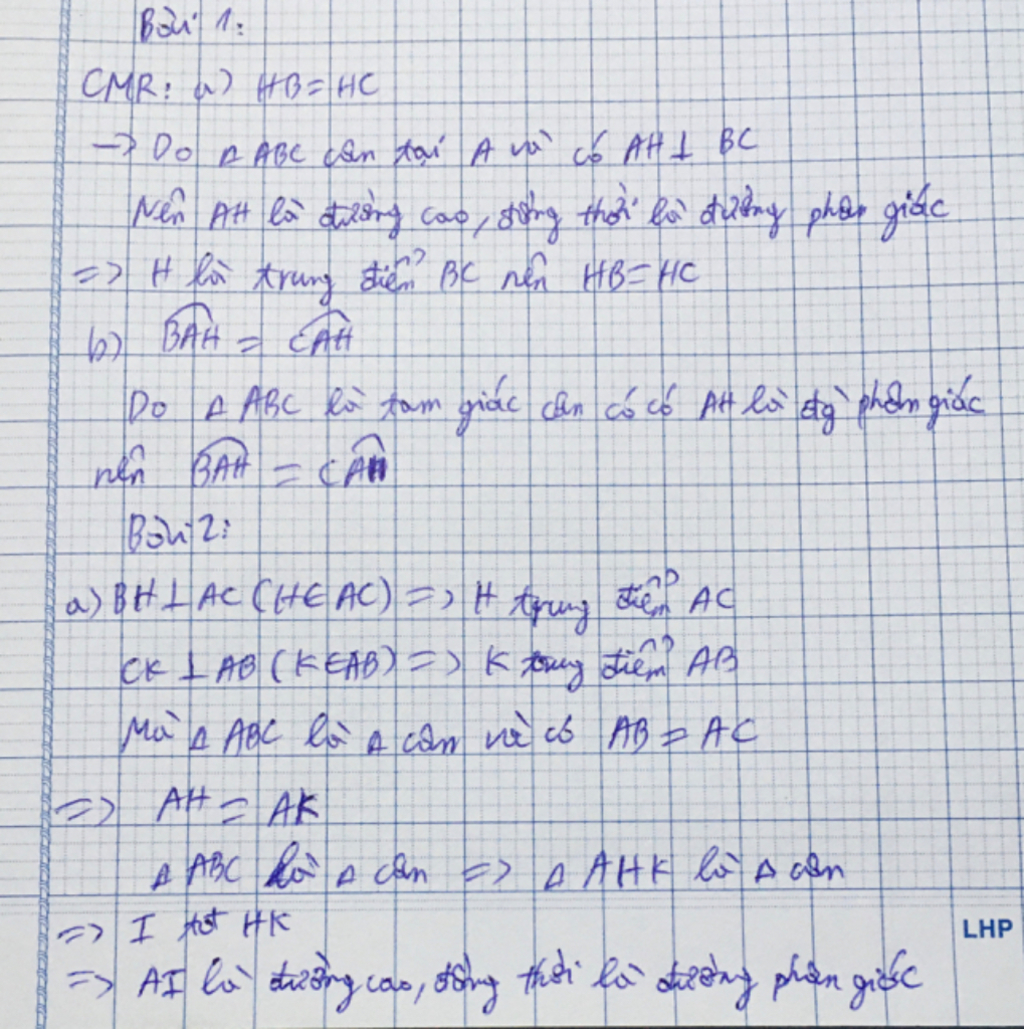 Bài 1:
CMR: a) HB = HC
→ Do Δ ABC cân tại A và có AH ⊥ BC
Nên AH là đường cao, đồng thời là đường phân giác
=> H là trung điểm BC nên HB = HC
b) BAH = CAH
Do Δ ABC là tam giác cân có có AH là đg` phân giác
nên BAH = CAH
Bài 2:
a) BH ⊥ AC (H ∈ AC) => H trung điểm AC
CK ⊥ AB (K ∈ AB) => K trung điểm AB
Mà Δ ABC là Δ cân và có AB = AC
=> AH = AK
Δ ABC là Δ cân => Δ AHK là Δ cân
=> I HK
LHP
=> AI là đường cao, đồng thời là đường phân giác